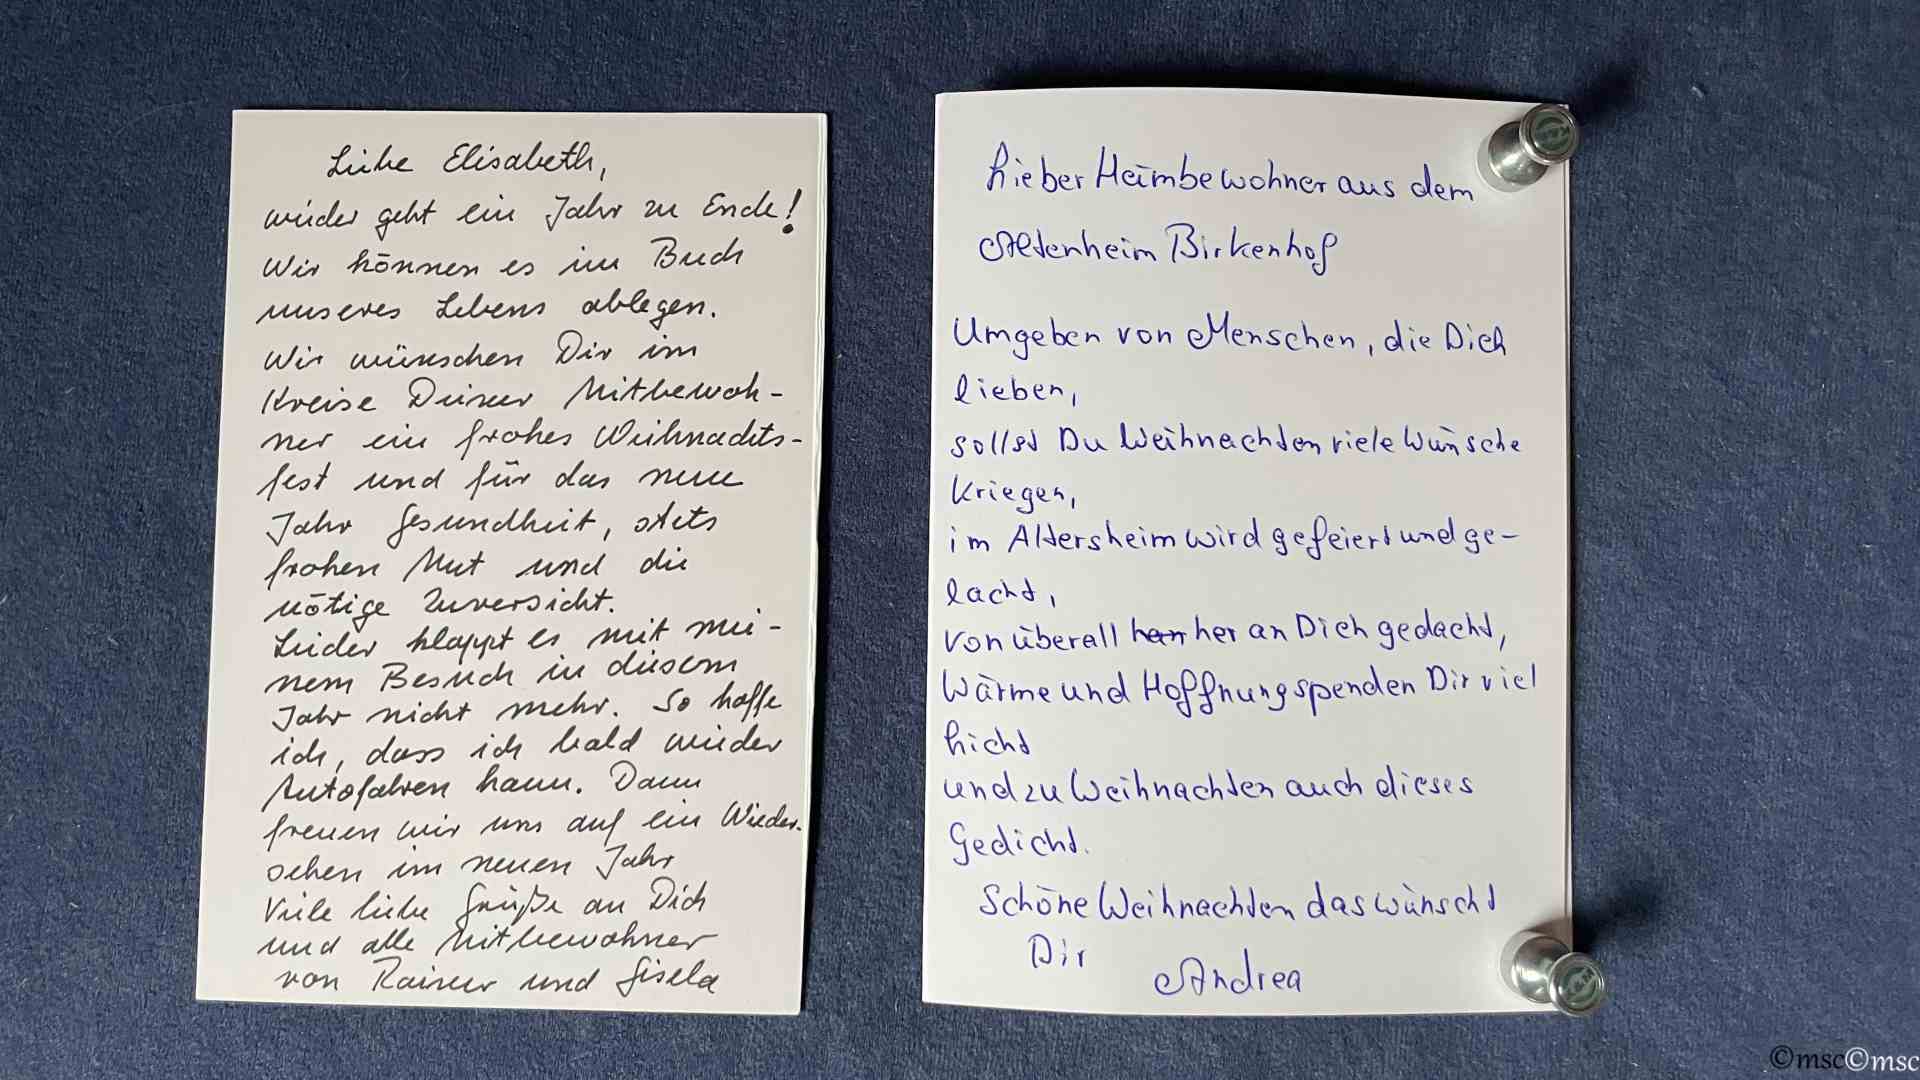 Liebe Elisabeth,
wieder geht ein Jahr zu Ende!
Wir können es im Buch
unseres Lebens ablegen.
Wir wünschen Dir im
Kreise Deiner Mitbewoh-
ner ein frohes Weihnachts-
fest und für das neue
Jahr Gesundheit, stets
frohen Mut und die
nötige Zuversicht.
Leider klappt es mit mei-
nem Besuch in diesem
Jahr nicht mehr. So hoffe
ich, dass ich bald wieder
Autofahren kann. Dann
freuen wir uns auf ein Wieder-
sehen im neuen Jahr
Viele liebe Grüße an Dich
und alle Mitbewohner
von Rainer und Gisela
Lieber Heimbewohner aus dem
Altenheim Birkenhof
Umgeben von Menschen, die Dich
lieben,
sollst Du Weihnachten viele Wünsche
kriegen,
im Altersheim wird gefeiert und ge-
lacht,
von überall her an Dich gedacht,
Wärme und Hoffnung spenden Dir viel
Licht
und zu Weihnachten auch dieses
Gedicht.
Schöne Weihnachten das wünscht
Dir
Andrea
©msc©msc